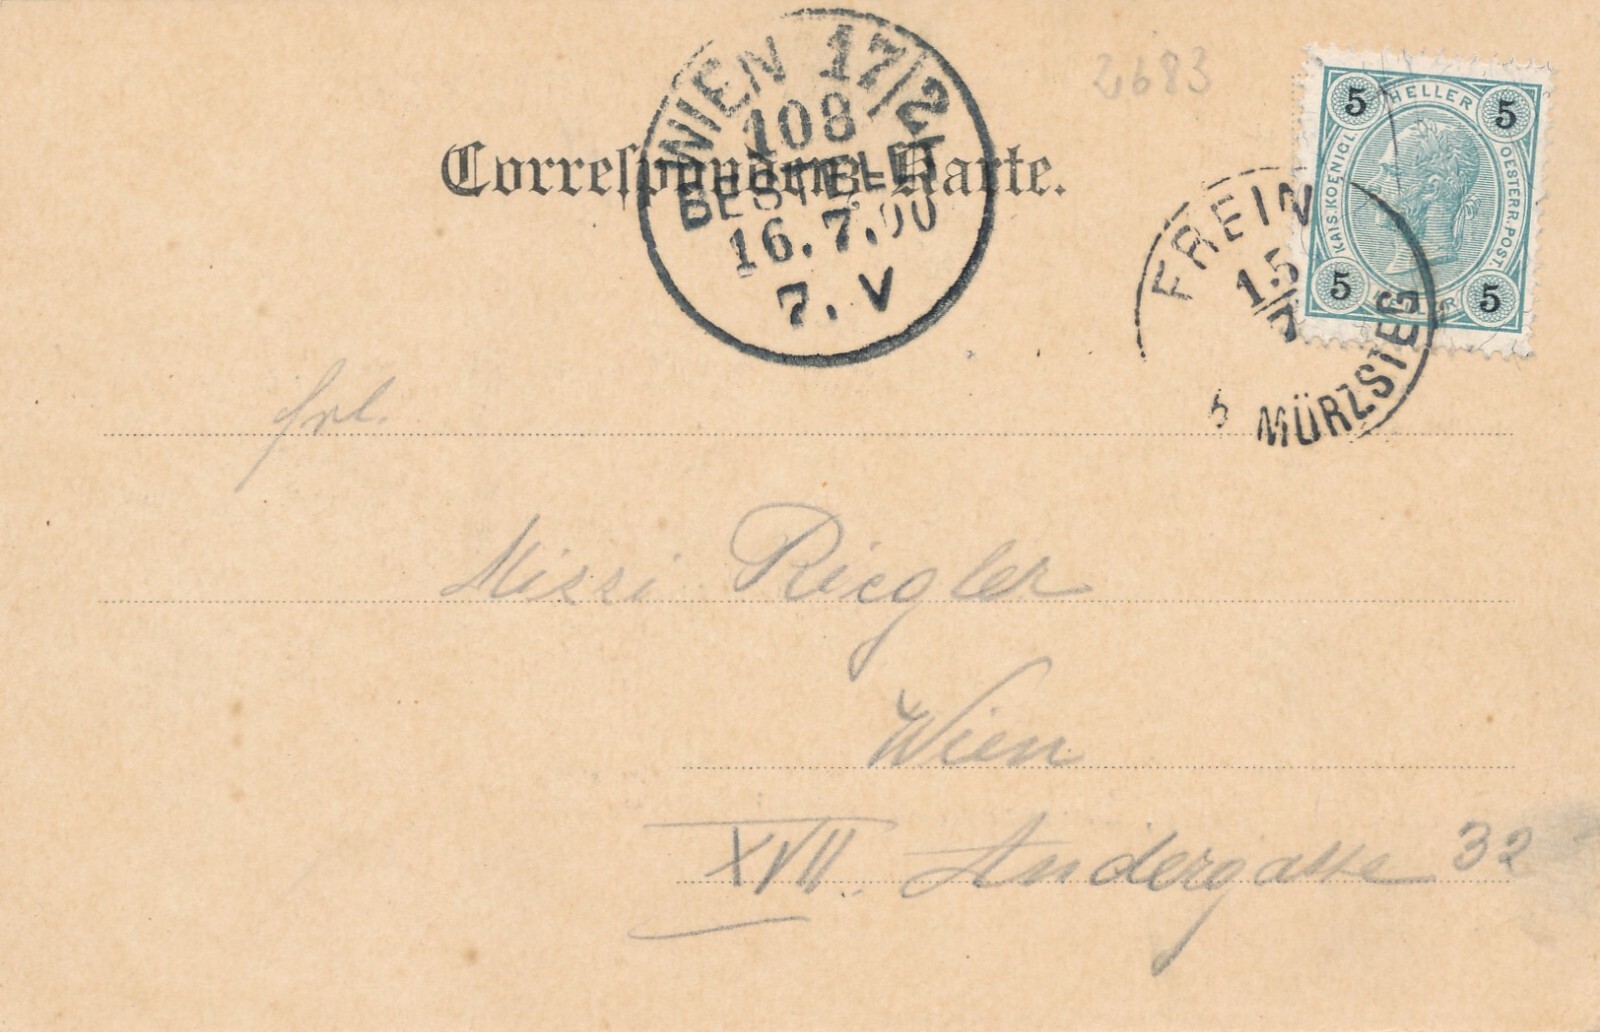 2683
WIEN 17/2
108
BESTELLT
16.7.00
7. V
Correspondenz-Karte.
5 HELLER 5
KAIS. KOENIGL. OESTERR. POST.
5 HELLER 5
FREIN
15
7
MÜRZSTEG
Frl.
Mizzi Riegler
Wien
XVII. Andergasse 32